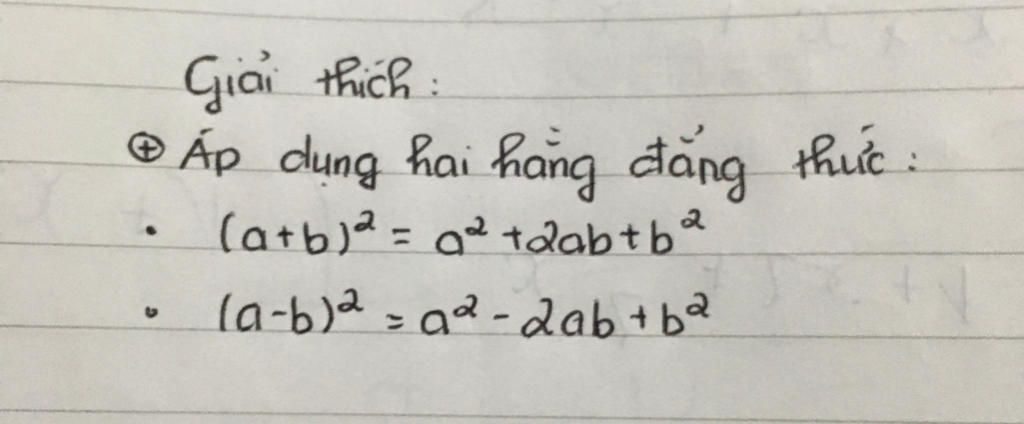 Giải thích:
⊕ Áp dụng hai hằng đẳng thức:
• (a+b)² = a² + 2ab + b²
• (a-b)² = a² - 2ab + b²